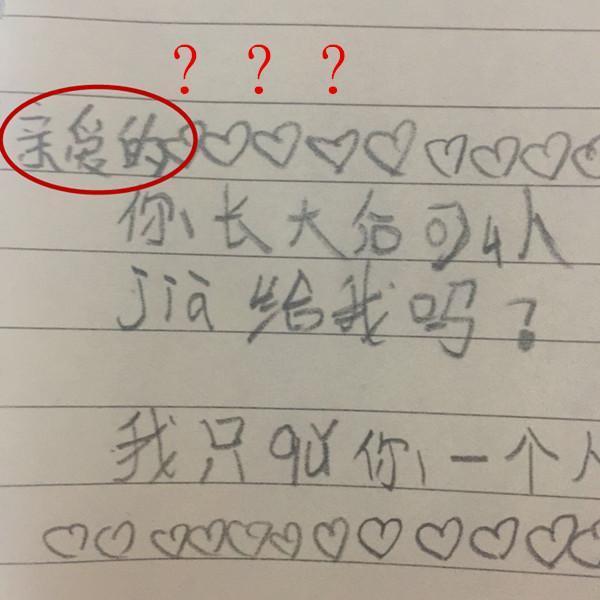 ? ? ?
亲爱的
你长大后可以
jià 给我吗?
我只qǔ你一个人